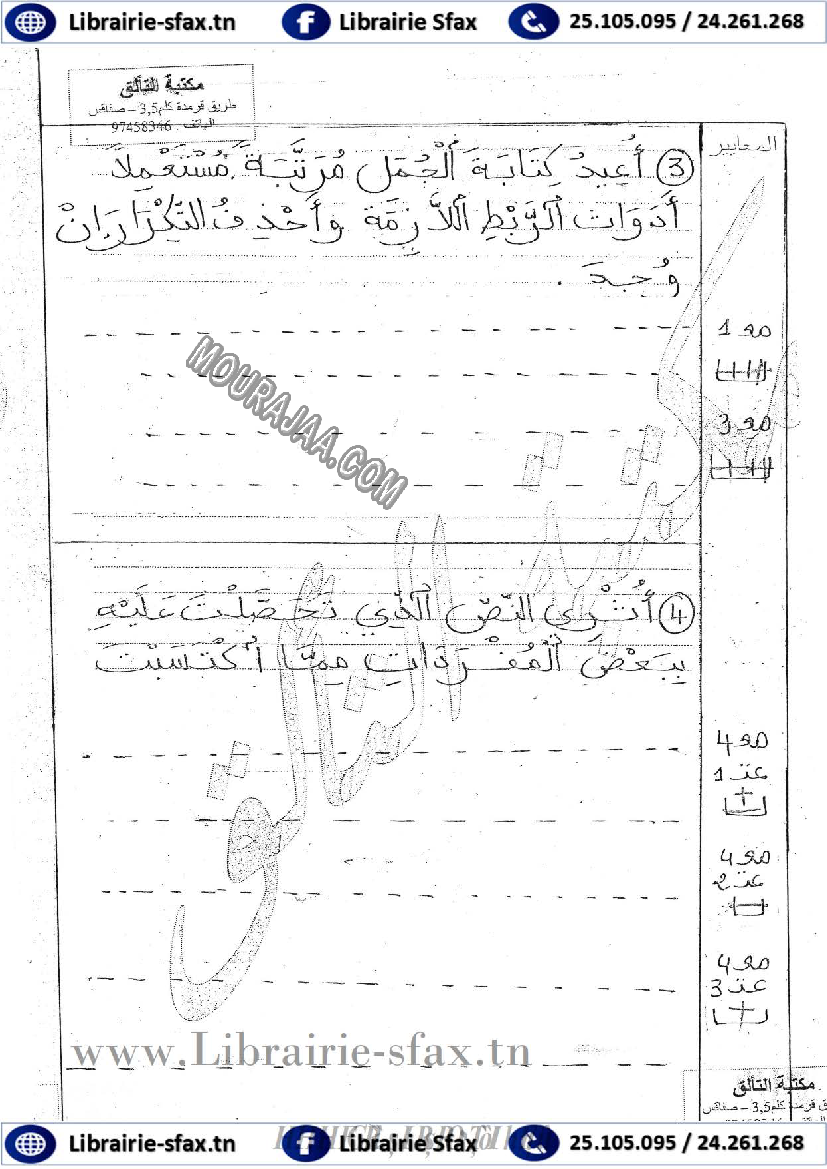 Librairie-sfax.tn Librairie Sfax 25.105.095 / 24.261.268
مكتبة التألق
طريق قرمدة كلم 3,5 – صفاقس
الهاتف : 97458346
المعايير
③ أُعِيدُ كِتَابَةَ ٱلْجُمَلِ مُرَتَّبَةً مُسْتَعْمِلاً
أَدَوَاتِ ٱلرَّبْطِ ٱللاَّزِمَةِ وَأَحْذِفُ التِّكْرَارَ إِنْ
وُجِدَ .
مع 1
مع 3
MOURAJAA.COM
④ أُثْرِي النَّصّ ٱلَّذِي تَحَصَّلْتَ عَلَيْهِ
بِبَعْضِ ٱلْمُفْرَدَاتِ مِمَّا ٱكْتَسَبْتَ
مع 4
عـ 1
مع 4
عـ 2
مع 4
عـ 3
مكتبة التألق
www.Librairie-sfax.tn
مكتبة التألق
ق قرمدة كلم 3,5 – صفاقس
Librairie-sfax.tn Librairie Sfax 25.105.095 / 24.261.268